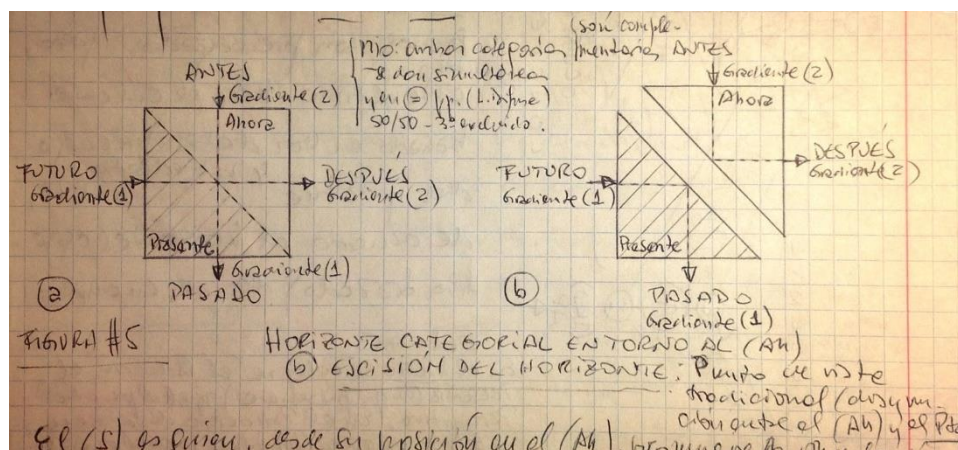 (son comple-
Mío: ambas categorías mentarias
se dan simultáneas
y en = pp. (
50/50 - 3º excluido.
ANTES
Gradiente (2)
Ahora
FUTURO
Gradiente (1)
DESPUÉS
Gradiente (2)
Presente
Gradiente (1)
PASADO
a
ANTES
Gradiente (2)
Ahora
FUTURO
Gradiente (1)
DESPUÉS
Gradiente (2)
Presente
PASADO
Gradiente (1)
b
FIGURA #5
HORIZONTE CATEGORIAL EN TORNO AL (Ah)
b ESCISIÓN DEL HORIZONTE: Punto de vista
tradicional (disyun-
ción entre el (Ah) y el
El (S) es quien, desde su posición en el (Ah)